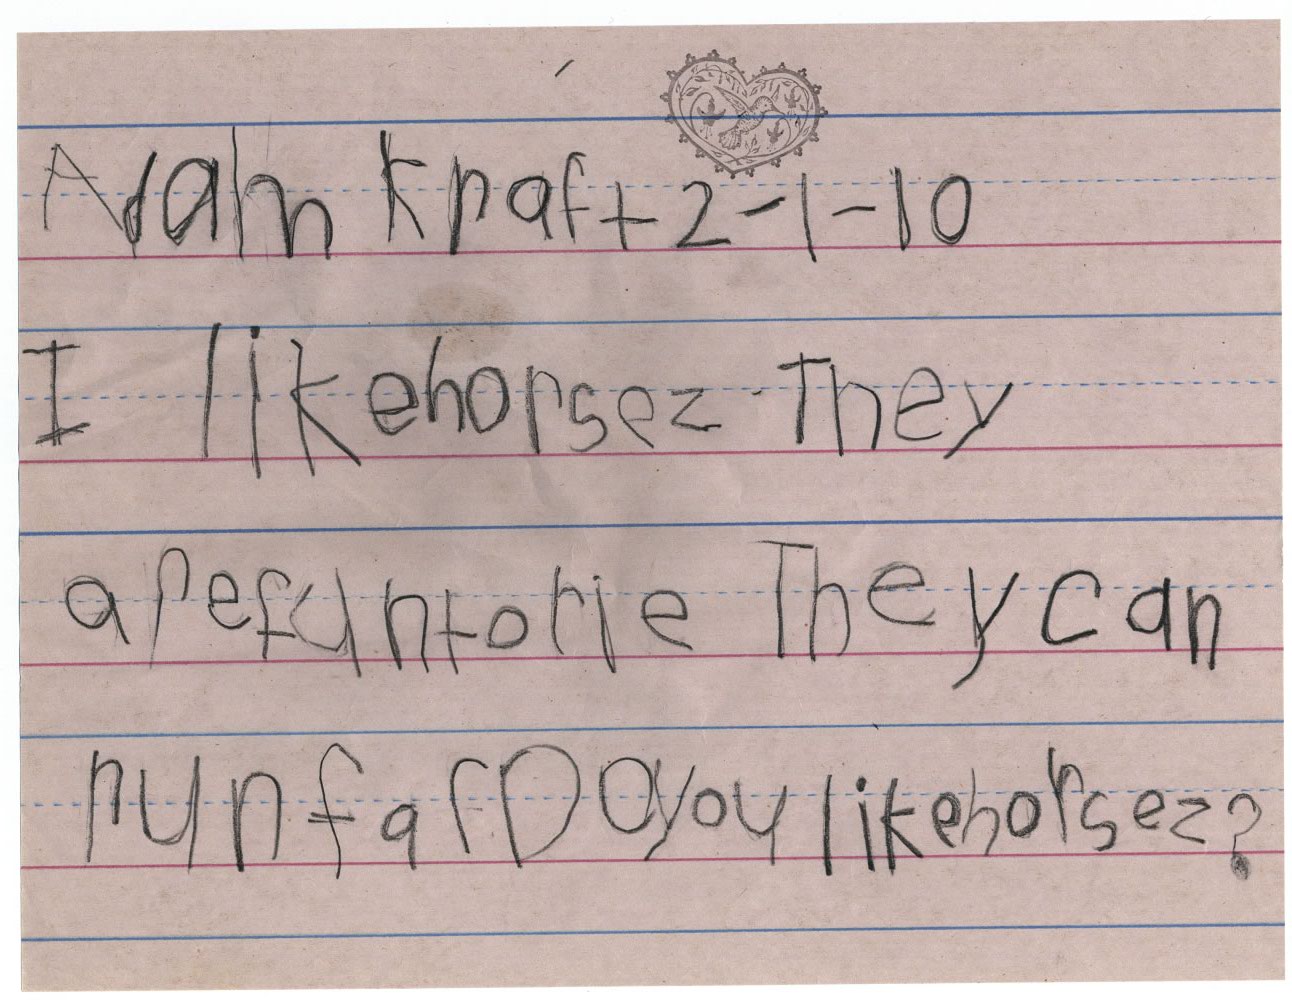 Adam Kraft 2-1-10
I like horsez. They
are fun to rie They can
run far DO you like horsez?